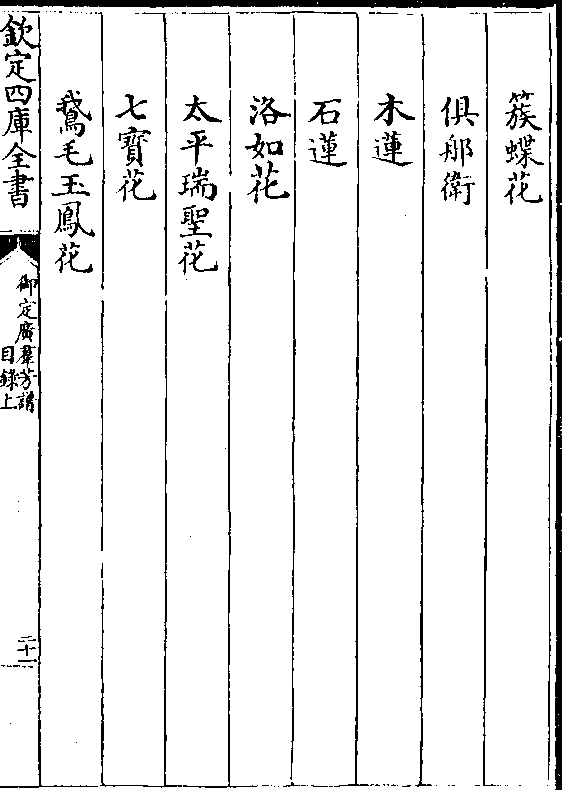 簇蝶花
俱那衛
木蓮
石蓮
洛如花
太平瑞聖花
七寳花
鵞毛玉鳳花
欽定四庫全書
御定廣羣芳譜
目錄上
二十一